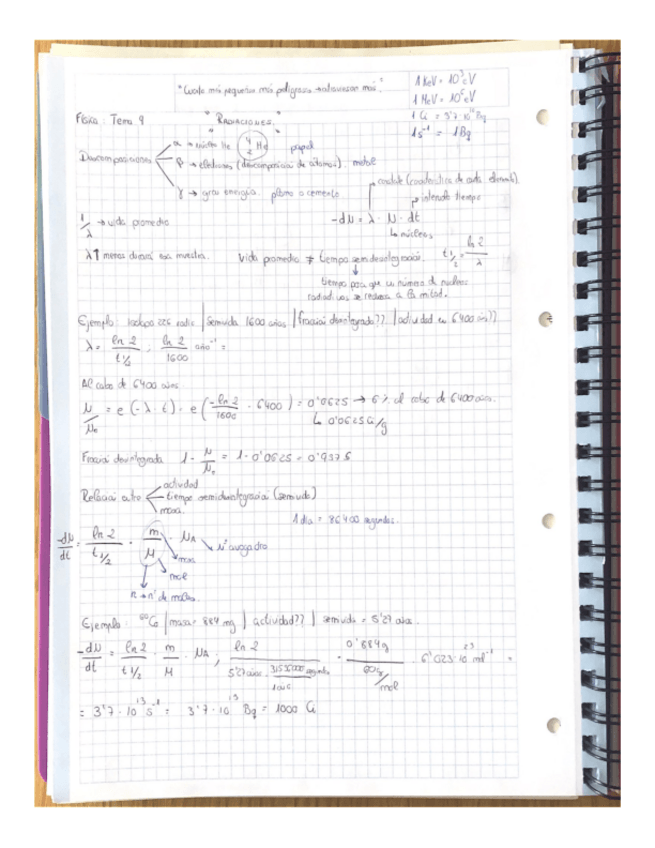 "Cuanto más pequeñas más peligrosas → atraviesan más."
1 KeV = 10³ eV
1 MeV = 10⁶ eV
1 Ci = 3'7 · 10¹⁰ Bq
1 s⁻¹ = 1 Bq
FÍSICA: Tema 9
"RADIACIONES."
α → núcleo He (⁴₂ He) papel
β → electrones (descomposición de átomos). metal
γ → gran energía. plomo o cemento
1/λ → vida promedio
constante (característica de cada elemento).
intervalo tiempo
-dN = λ · N · dt
↳ núcleos
λ↑ menos durará esa muestra.
Vida promedio ≠ tiempo semidesintegración.
t 1/2 = ln 2 / λ
tiempo para que un número de núcleos
radiactivos se reduzca a la mitad.
Ejemplo: isótopo 226 radio | semivida 1600 años | fracción desintegrada?? | actividad en 6400 años??
λ = ln 2 / t 1/2 , ln 2 / 1600 año⁻¹ =
Al cabo de 6400 años.
N/N₀ = e (-λ · t) = e (-ln 2 / 1600 · 6400) = 0'0625 → 6% al cabo de 6400 años.
↳ 0'0625 Ci/g
Fracción desintegrada 1 - N/N₀ = 1 - 0'0625 = 0'9375
Relación entre
actividad
tiempo semidesintegración (semivida)
masa.
1 día = 86400 segundos.
-dN/dt = ln 2 / t 1/2 · m/M · NA
nº avogadro
masa
mol
n → nº de moles.
Ejemplo: ⁶⁰Co | masa = 884 mg | actividad?? | semivida = 5'27 años.
-dN/dt = ln 2 / t 1/2 · m/M · NA ; ln 2 / 5'27 años · 31536000 segundos / 1 año · 0'884 g / 60 g/mol · 6'023 · 10²³ mol⁻¹ =
= 3'7 · 10¹³ s⁻¹ = 3'7 · 10¹³ Bq = 1000 Ci